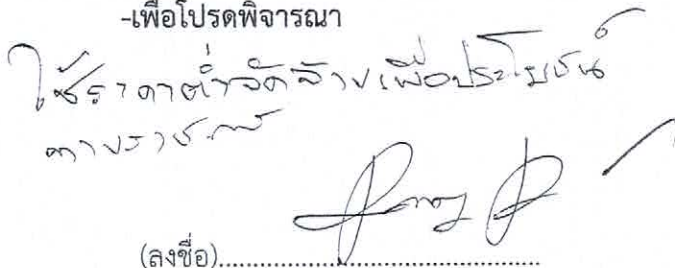 -เพื่อโปรดพิจารณา
ใช้ราคาต่ำจัดจ้างเพื่อประโยชน์
ทางราชการ
(ลงชื่อ)........................................